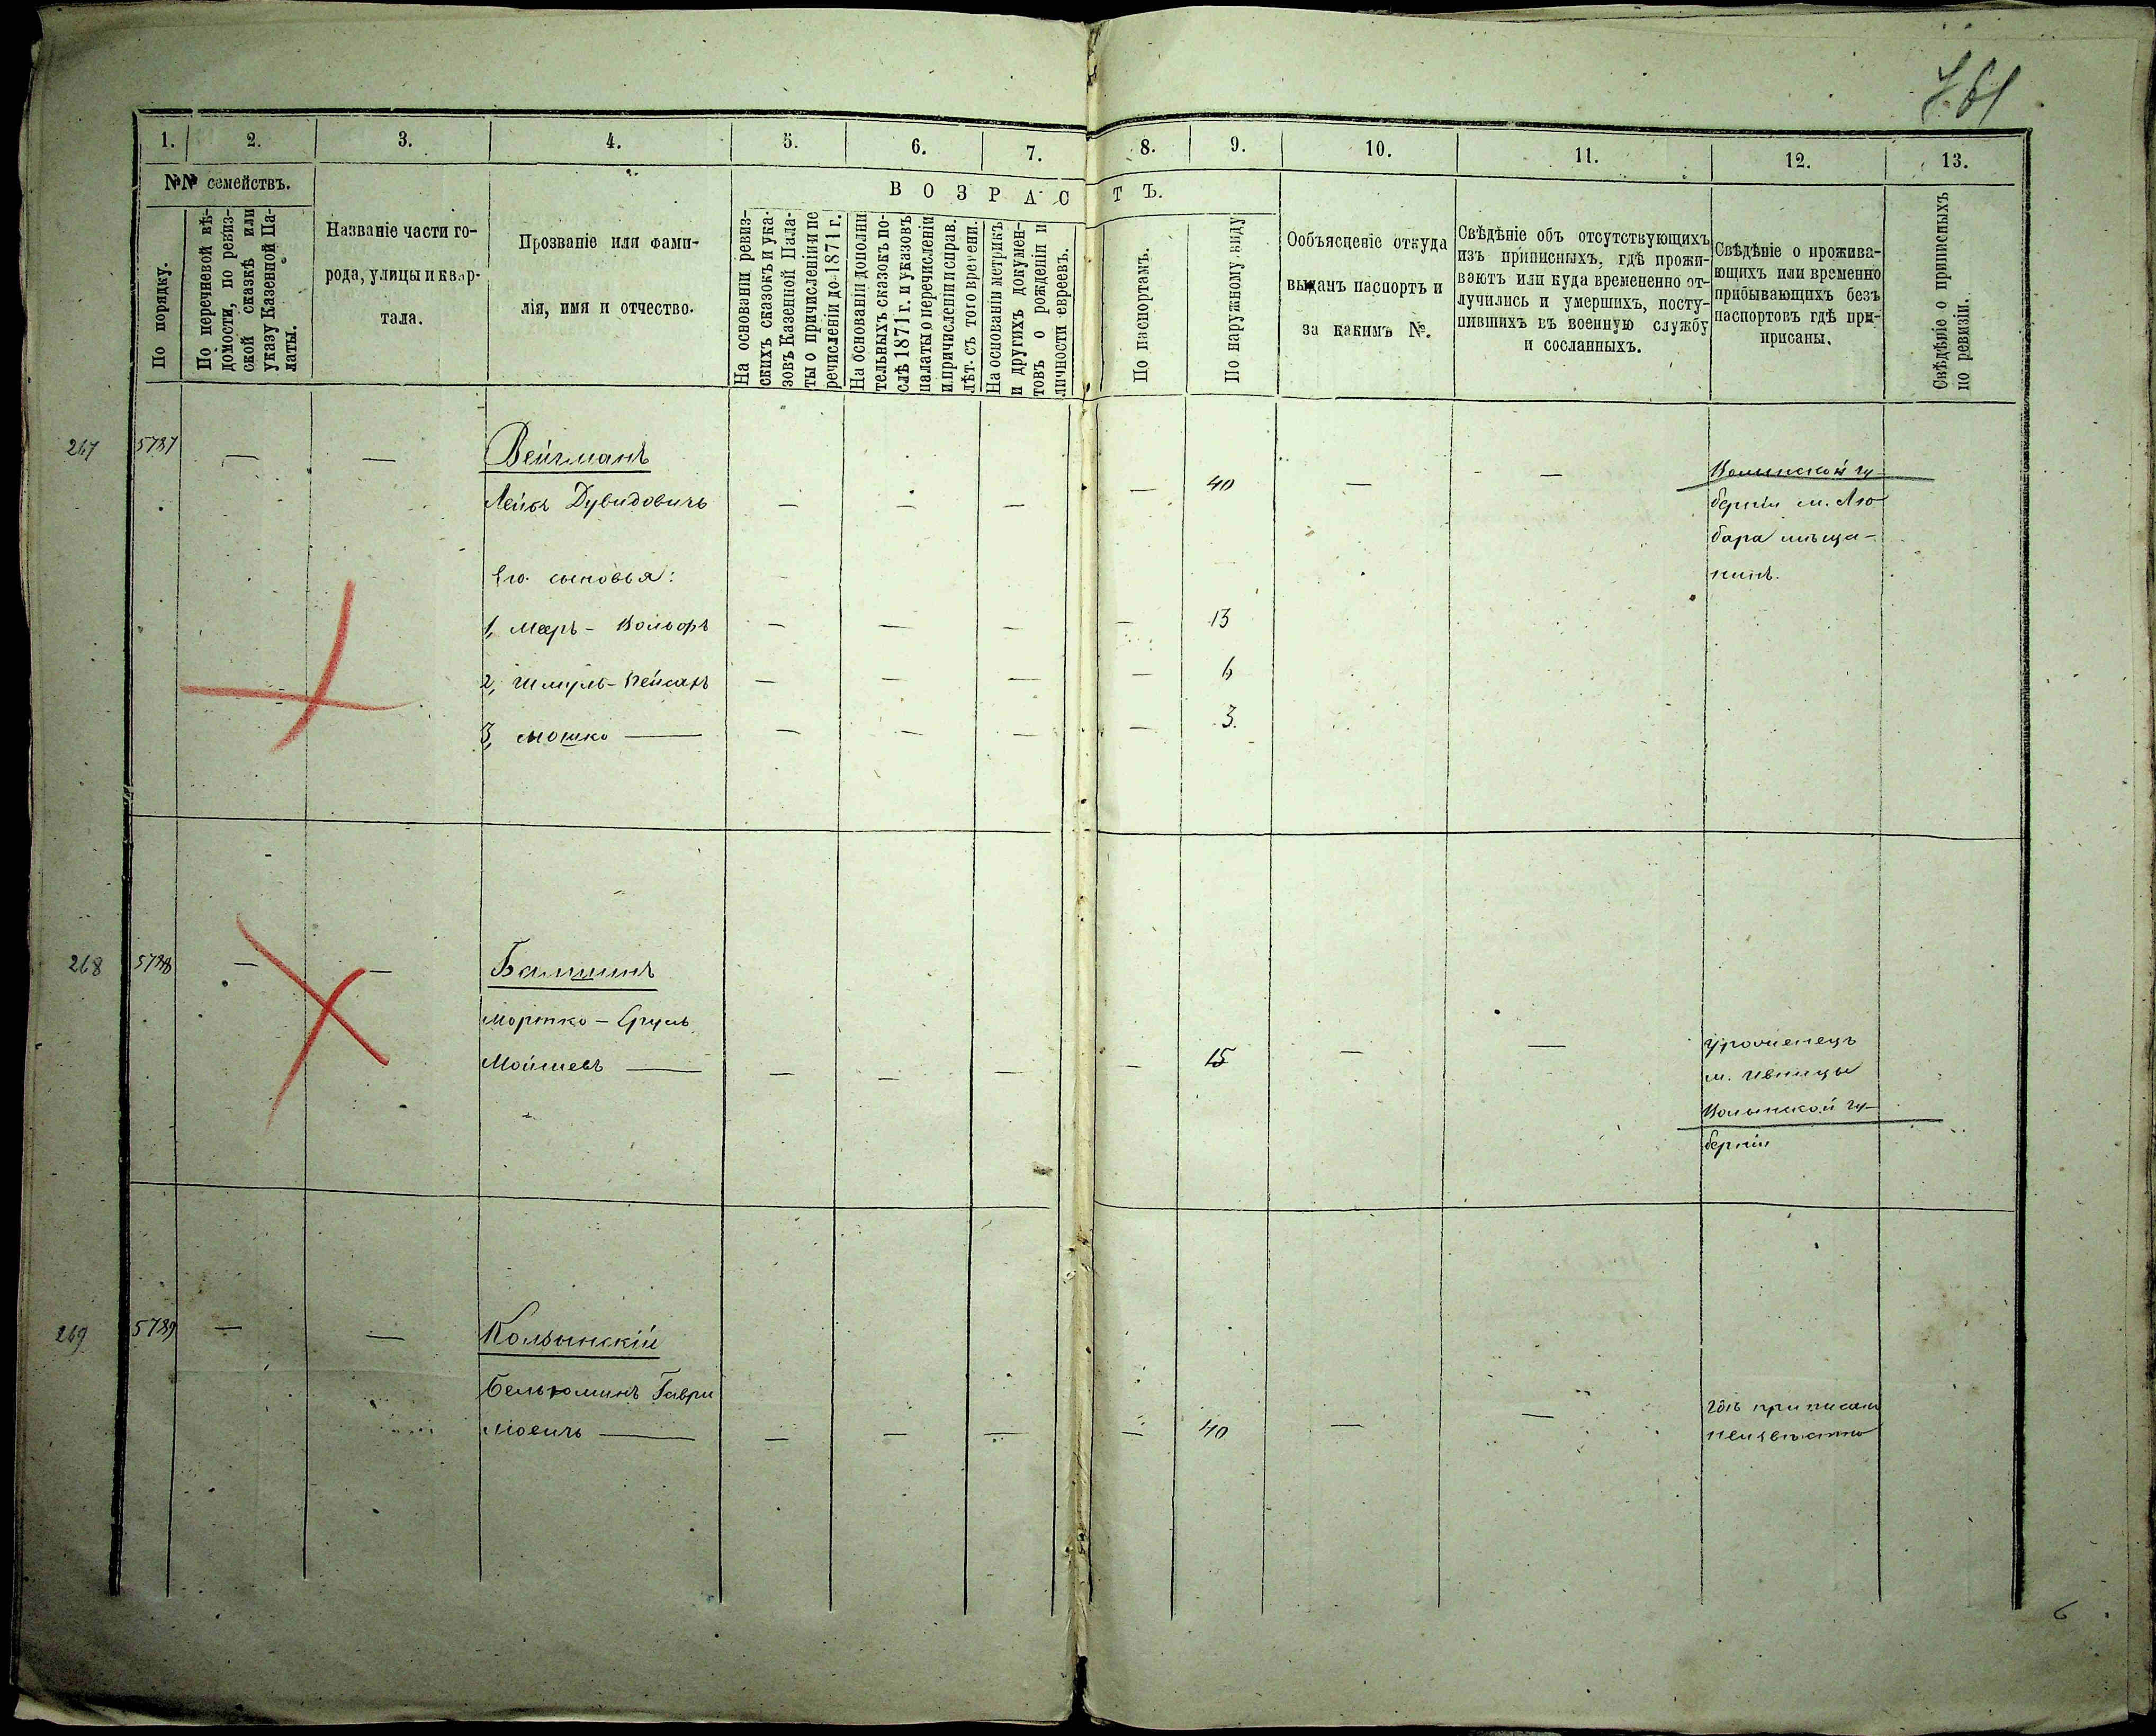 761
1. 2. 3. 4. 5. 6. 7. 8. 9. 10. 11. 12. 13.
№№ семействъ.
По порядку.
По перечневой вѣ-
домости, по ревиз-
ской сказкѣ или
указу Казенной Па-
латы.
Названіе части го-
рода, улицы и квар-
тала.
Прозваніе или фами-
лія, имя и отчество.
ВОЗРАСТЪ.
На основаніи ревиз-
скихъ сказокъ и ука-
зовъ Казенной Пала-
ты о причисленіи и пе
речисленіи до 1871 г.
На основаніи дополни
тельныхъ сказокъ по-
слѣ 1871 г. и указовъ
палаты о перечисленіи
и причисленіи и справ.
лѣт. съ того времени.
На основаніи метрикъ
и другихъ докумен-
товъ о рожденіи и
личности евреевъ.
По паспортамъ.
По наружному виду
Ообъясненіе откуда
выданъ паспортъ и
за какимъ №.
Свѣдѣніе объ отсутствующихъ
изъ приписныхъ, гдѣ прожи-
ваютъ или куда временено от-
лучились и умершихъ, посту-
пившихъ въ военную службу
и сосланныхъ.
Свѣдѣніе о прожива-
ющихъ или временно
прибывающихъ безъ
паспортовъ гдѣ при-
присаны.
Свѣдѣніе о приписныхъ
по ревизіи.
267 5787 — — Вейгманъ
Лейба Дувидовичъ — — — — 40 — — Волынской гу-
берніи м. Лю
бара мѣща-
нинъ.
Его сыновья:
1, Мееръ - Вольфъ — — — — 13
2, Шмуль - Пейсахъ — — — — 6
3, Мошко — — — — — 3.
268 5788 — — Балшинъ
Мортко - Сруль
Мойшевъ — — — — — 15 — — Уроженецъ
м. Ивницы
Волынской гу-
берніи
269 5789 — — Колбынскій
Бельюминъ Гаври
ловичъ — — — — — 40 — — Гдѣ приписанъ
неизвѣстно
6